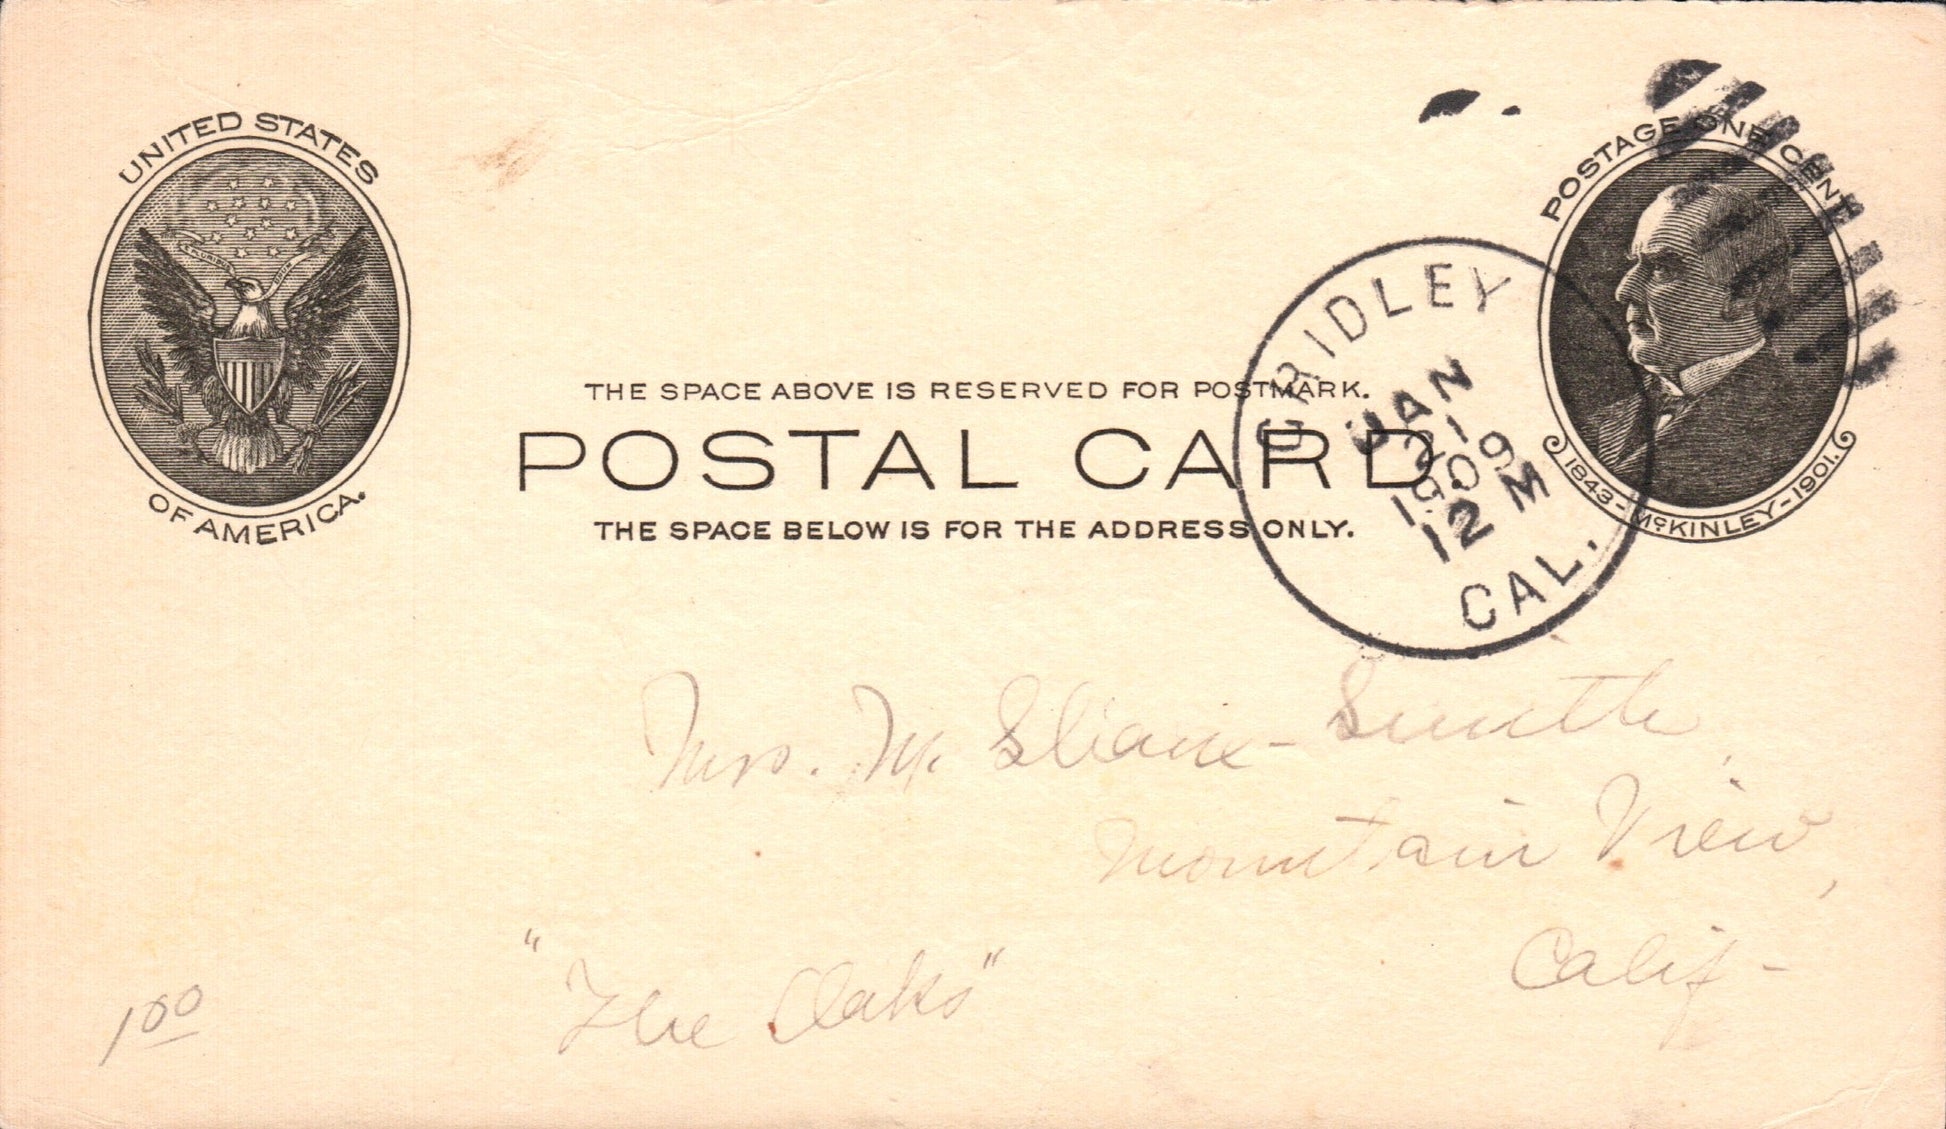 UNITED STATES
OF AMERICA.
E PLURIBUS
POSTAGE ONE CENT
1843-McKINLEY-1901.
THE SPACE ABOVE IS RESERVED FOR POSTMARK.
POSTAL CARD
THE SPACE BELOW IS FOR THE ADDRESS ONLY.
GRIDLEY
JAN
21
1909
12 M
CAL.
Mrs. M Sloane-Smith,
Mountain View,
Calif-
"The Oaks"
1 00